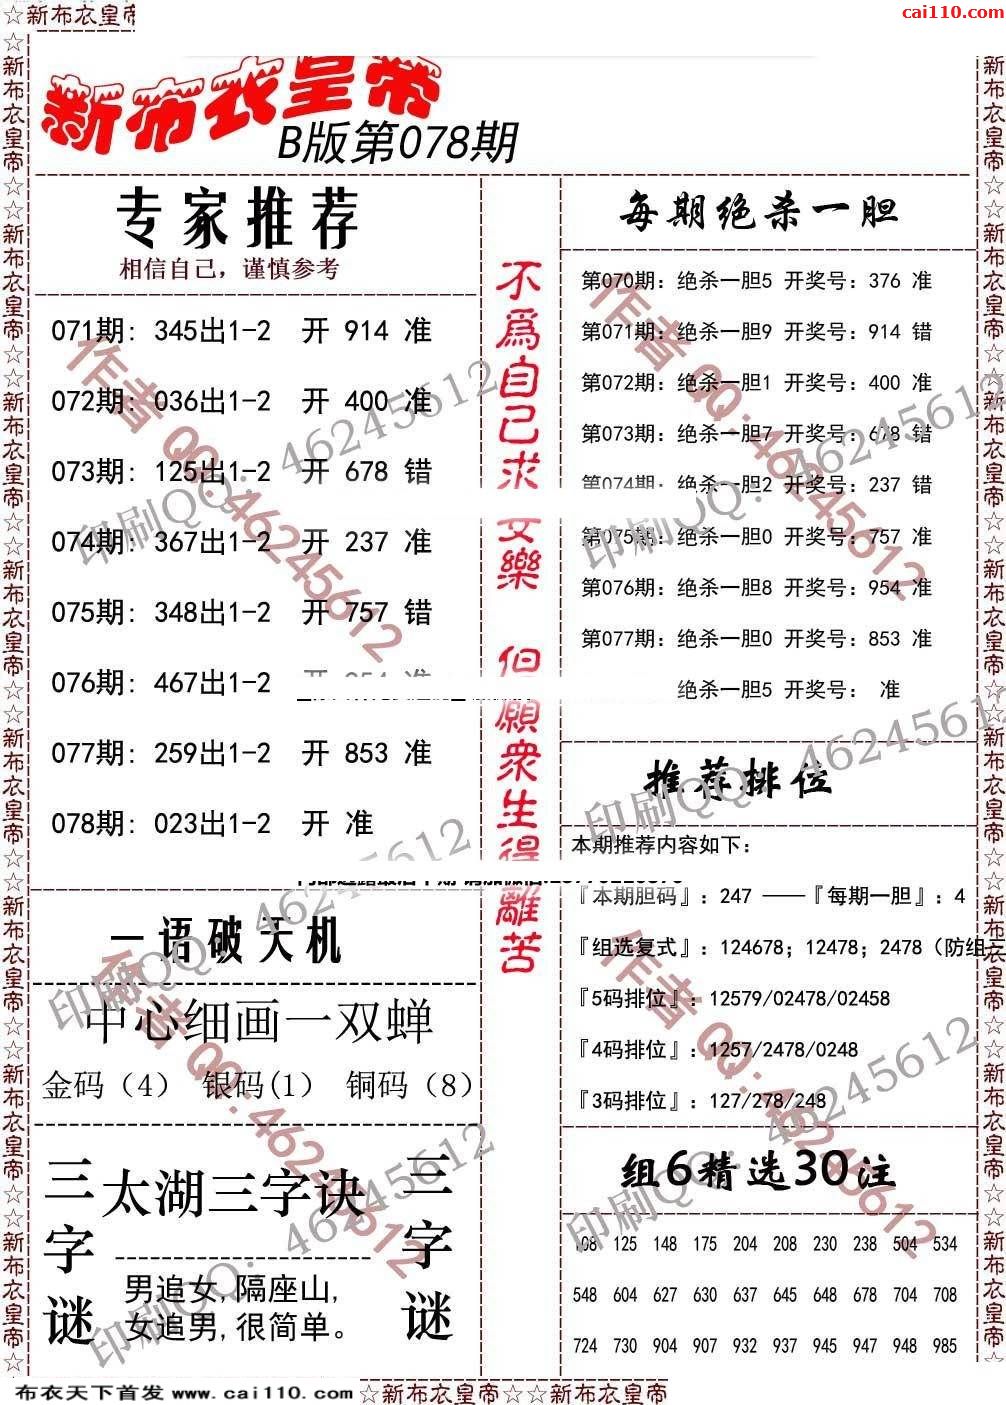 ☆新布衣皇帝
cai110.com
☆新布衣皇帝☆☆新布衣皇帝☆☆新布衣皇帝☆☆新布衣皇帝☆☆新布衣皇帝☆☆新布衣皇帝☆☆新布衣皇帝☆☆新布衣皇帝☆
新布衣皇帝
B版第078期
专家推荐
相信自己，谨慎参考
071期: 345出1-2 开 914 准
072期: 036出1-2 开 400 准
073期: 125出1-2 开 678 错
074期: 367出1-2 开 237 准
075期: 348出1-2 开 757 错
076期: 467出1-2
077期: 259出1-2 开 853 准
078期: 023出1-2 开 准
一语破天机
中心细画一双蝉
金码（4） 银码(1） 铜码（8）
三字谜
太湖三字诀
男追女,隔座山,
女追男,很简单。
三字谜
不為自己求安樂 但願衆生得離苦
每期绝杀一胆
第070期: 绝杀一胆5 开奖号: 376 准
第071期: 绝杀一胆9 开奖号: 914 错
第072期: 绝杀一胆1 开奖号: 400 准
第073期: 绝杀一胆7 开奖号: 678 错
第074期: 绝杀一胆2 开奖号: 237 错
第075期: 绝杀一胆0 开奖号: 757 准
第076期: 绝杀一胆8 开奖号: 954 准
第077期: 绝杀一胆0 开奖号: 853 准
绝杀一胆5 开奖号: 准
推荐排位
本期推荐内容如下:
『本期胆码』: 247 ——『每期一胆』: 4
『组选复式』: 124678; 12478; 2478（防组三
『5码排位』: 12579/02478/02458
『4码排位』: 1257/2478/0248
『3码排位』: 127/278/248
组6精选30注
108 125 148 175 204 208 230 238 504 534
548 604 627 630 637 645 648 678 704 708
724 730 904 907 932 945 947 940 948 985
作者QQ:46245612
印刷QQ: 46245612
作者QQ:46245612
印刷QQ: 46245612
作者QQ:46245612
印刷QQ: 46245612
印刷QQ: 46245612
作者QQ:46245612
印刷QQ: 46245612
印刷QQ: 46245612
布衣天下首发 www.cai110.com ☆新布衣皇帝☆☆新布衣皇帝☆